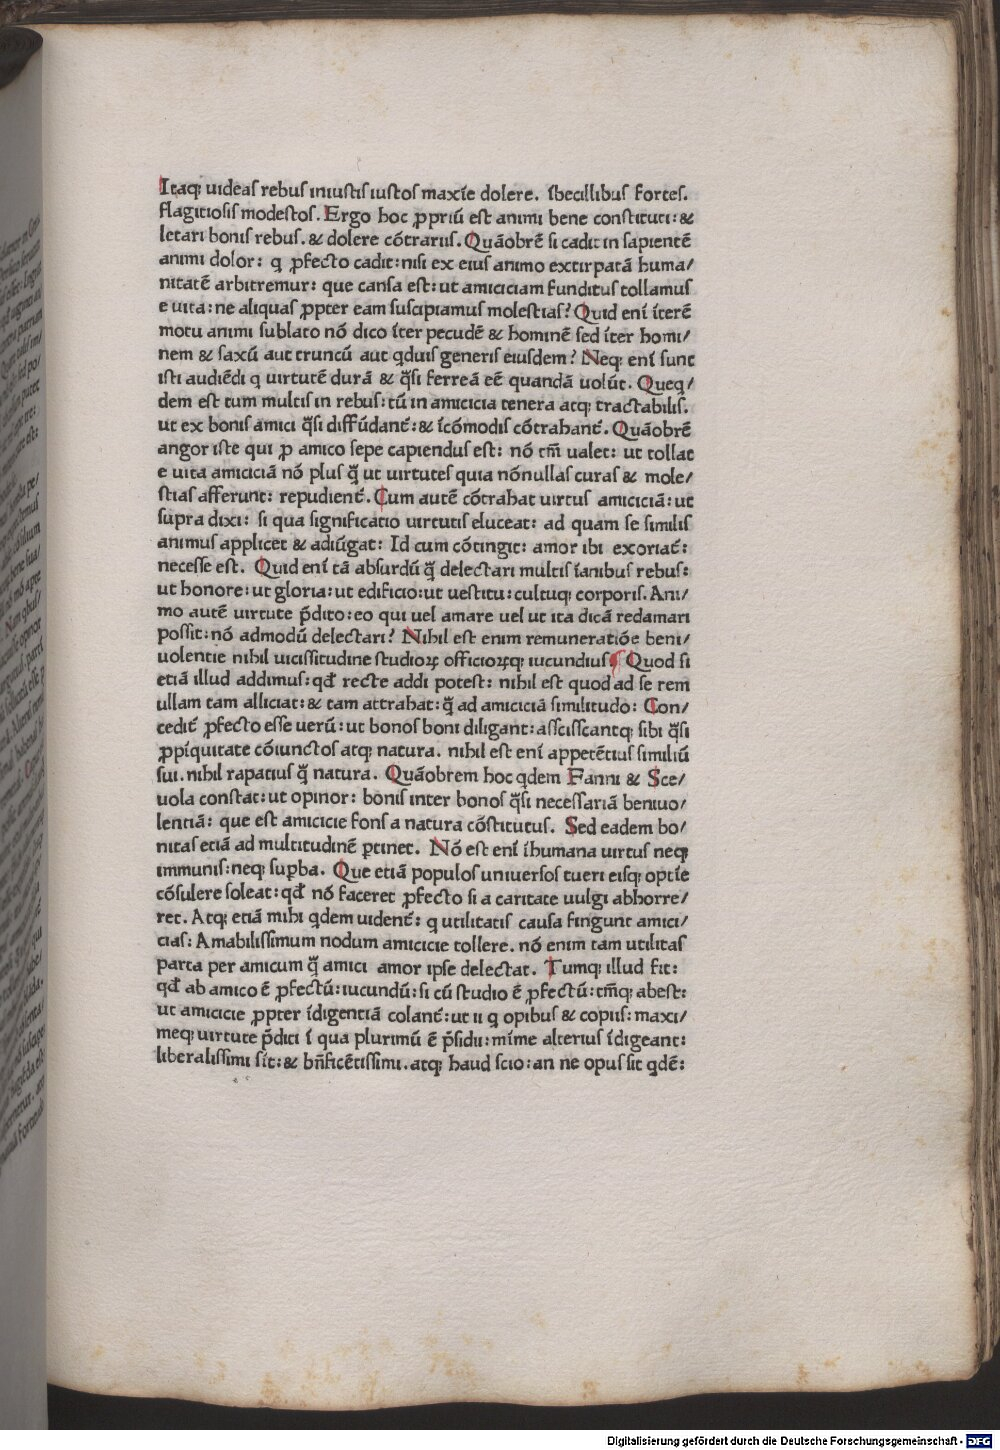 Itaq; uideas rebus iniustis iustos maxīe dolere. ībecillibus fortes.
flagitiosis modestos. Ergo hoc ꝓpriū est animi bene constituti: &
letari bonis rebus. & dolere cōtrariis. Quāobrē si cadit in sapientē
animi dolor: q ꝓfecto cadit: nisi ex eius animo extirpatā huma/
nitatē arbitremur: que cansa est: ut amiciciam funditus tollamus
e uita: ne aliquas ꝓpter eam suscipiamus molestias? Quid enī īterē
motu animi sublato nō dico īter pecudē & hominē sed īter homi/
nem & saxū aut truncū aut qduis generis eiusdem? Neq; enī sunt
isti audiēdi q uirtutē durā & q̄si ferreā eē quandā uolūt. Queq/
dem est tum multis in rebus: tū in amicicia tenera atq; tractabilis.
ut ex bonis amici q̄si diffūdant̄: & īcōmodis cōtrahant̄. Quāobrē
angor iste qui ꝓ amico sepe capiendus est: nō tm̄ ualet: ut tollat
e uita amiciciā nō plus q̄ ut uirtutes quia nōnullas curas & mole/
stias afferunt: repudient̄. Cum autē cōtrahat uirtus amiciciā: ut
supra dixi: si qua significatio uirtutis eluceat: ad quam se similis
animus applicet & adiūgat: Id cum cōtingit: amor ibi exoriat̄:
necesse est. Quid enī tā absurdū q̄ delectari multis īanibus rebus:
ut honore: ut gloria: ut edificio: ut uestitu: cultuq; corporis. Ani/
mo autē uirtute p̄dito: eo qui uel amare uel ut ita dicā redamari
possit: nō admodū delectari? Nihil est enim remuneratiōe beni/
uolentie nihil uicissitudine studioꝝ officioꝝq; iucundius Quod si
etiā illud addimus: qđ recte addi potest: nihil est quod ad se rem
ullam tam alliciat: & tam attrahat: q̄ ad amiciciā similitudo: Con/
cedit̄ ꝓfecto esse uerū: ut bonos boni diligant: asscisscantq; sibi q̄si
ꝓpīquitate cōiunctos atq; natura. nihil est enī appetētius similiū
sui. nihil rapatius q̄ natura. Quāobrem hoc qdem Fanni & Sce/
uola constat: ut opinor: bonis inter bonos q̄si necessariā beniuo/
lentiā: que est amicicie fons a natura cōstitutus. Sed eadem bo/
nitas etiā ad multitudinē ꝑtinet. Nō est enī īhumana uirtus neq;
immunis: neq; suꝑba. Que etiā populos uniuersos tueri eisq; optīe
cōsulere soleat: qđ nō faceret ꝓfecto si a caritate uulgi abhorre/
ret. Atq; etiā mihi qdem uident̄: q utilitatis causa fingunt amici/
cias: Amabilissimum nodum amicicie tollere. nō enim tam utilitas
parta per amicum q̄ amici amor ipse delectat. Tumq; illud fit:
qđ ab amico ē ꝓfectū: iucundū: si cū studio ē ꝓfectū: tm̄q; abest:
ut amicicie ꝓpter īdigentiā colant̄: ut ii q opibus & copiis: maxi/
meq; uirtute p̄diti ī qua plurimū ē p̄sidii: mīme alterius īdigeant:
liberalissimi sīt: & bn̄ficētissimi. atq; haud scio: an ne opus sit qdē:
Digitalisierung gefördert durch die Deutsche Forschungsgemeinschaft - DFG